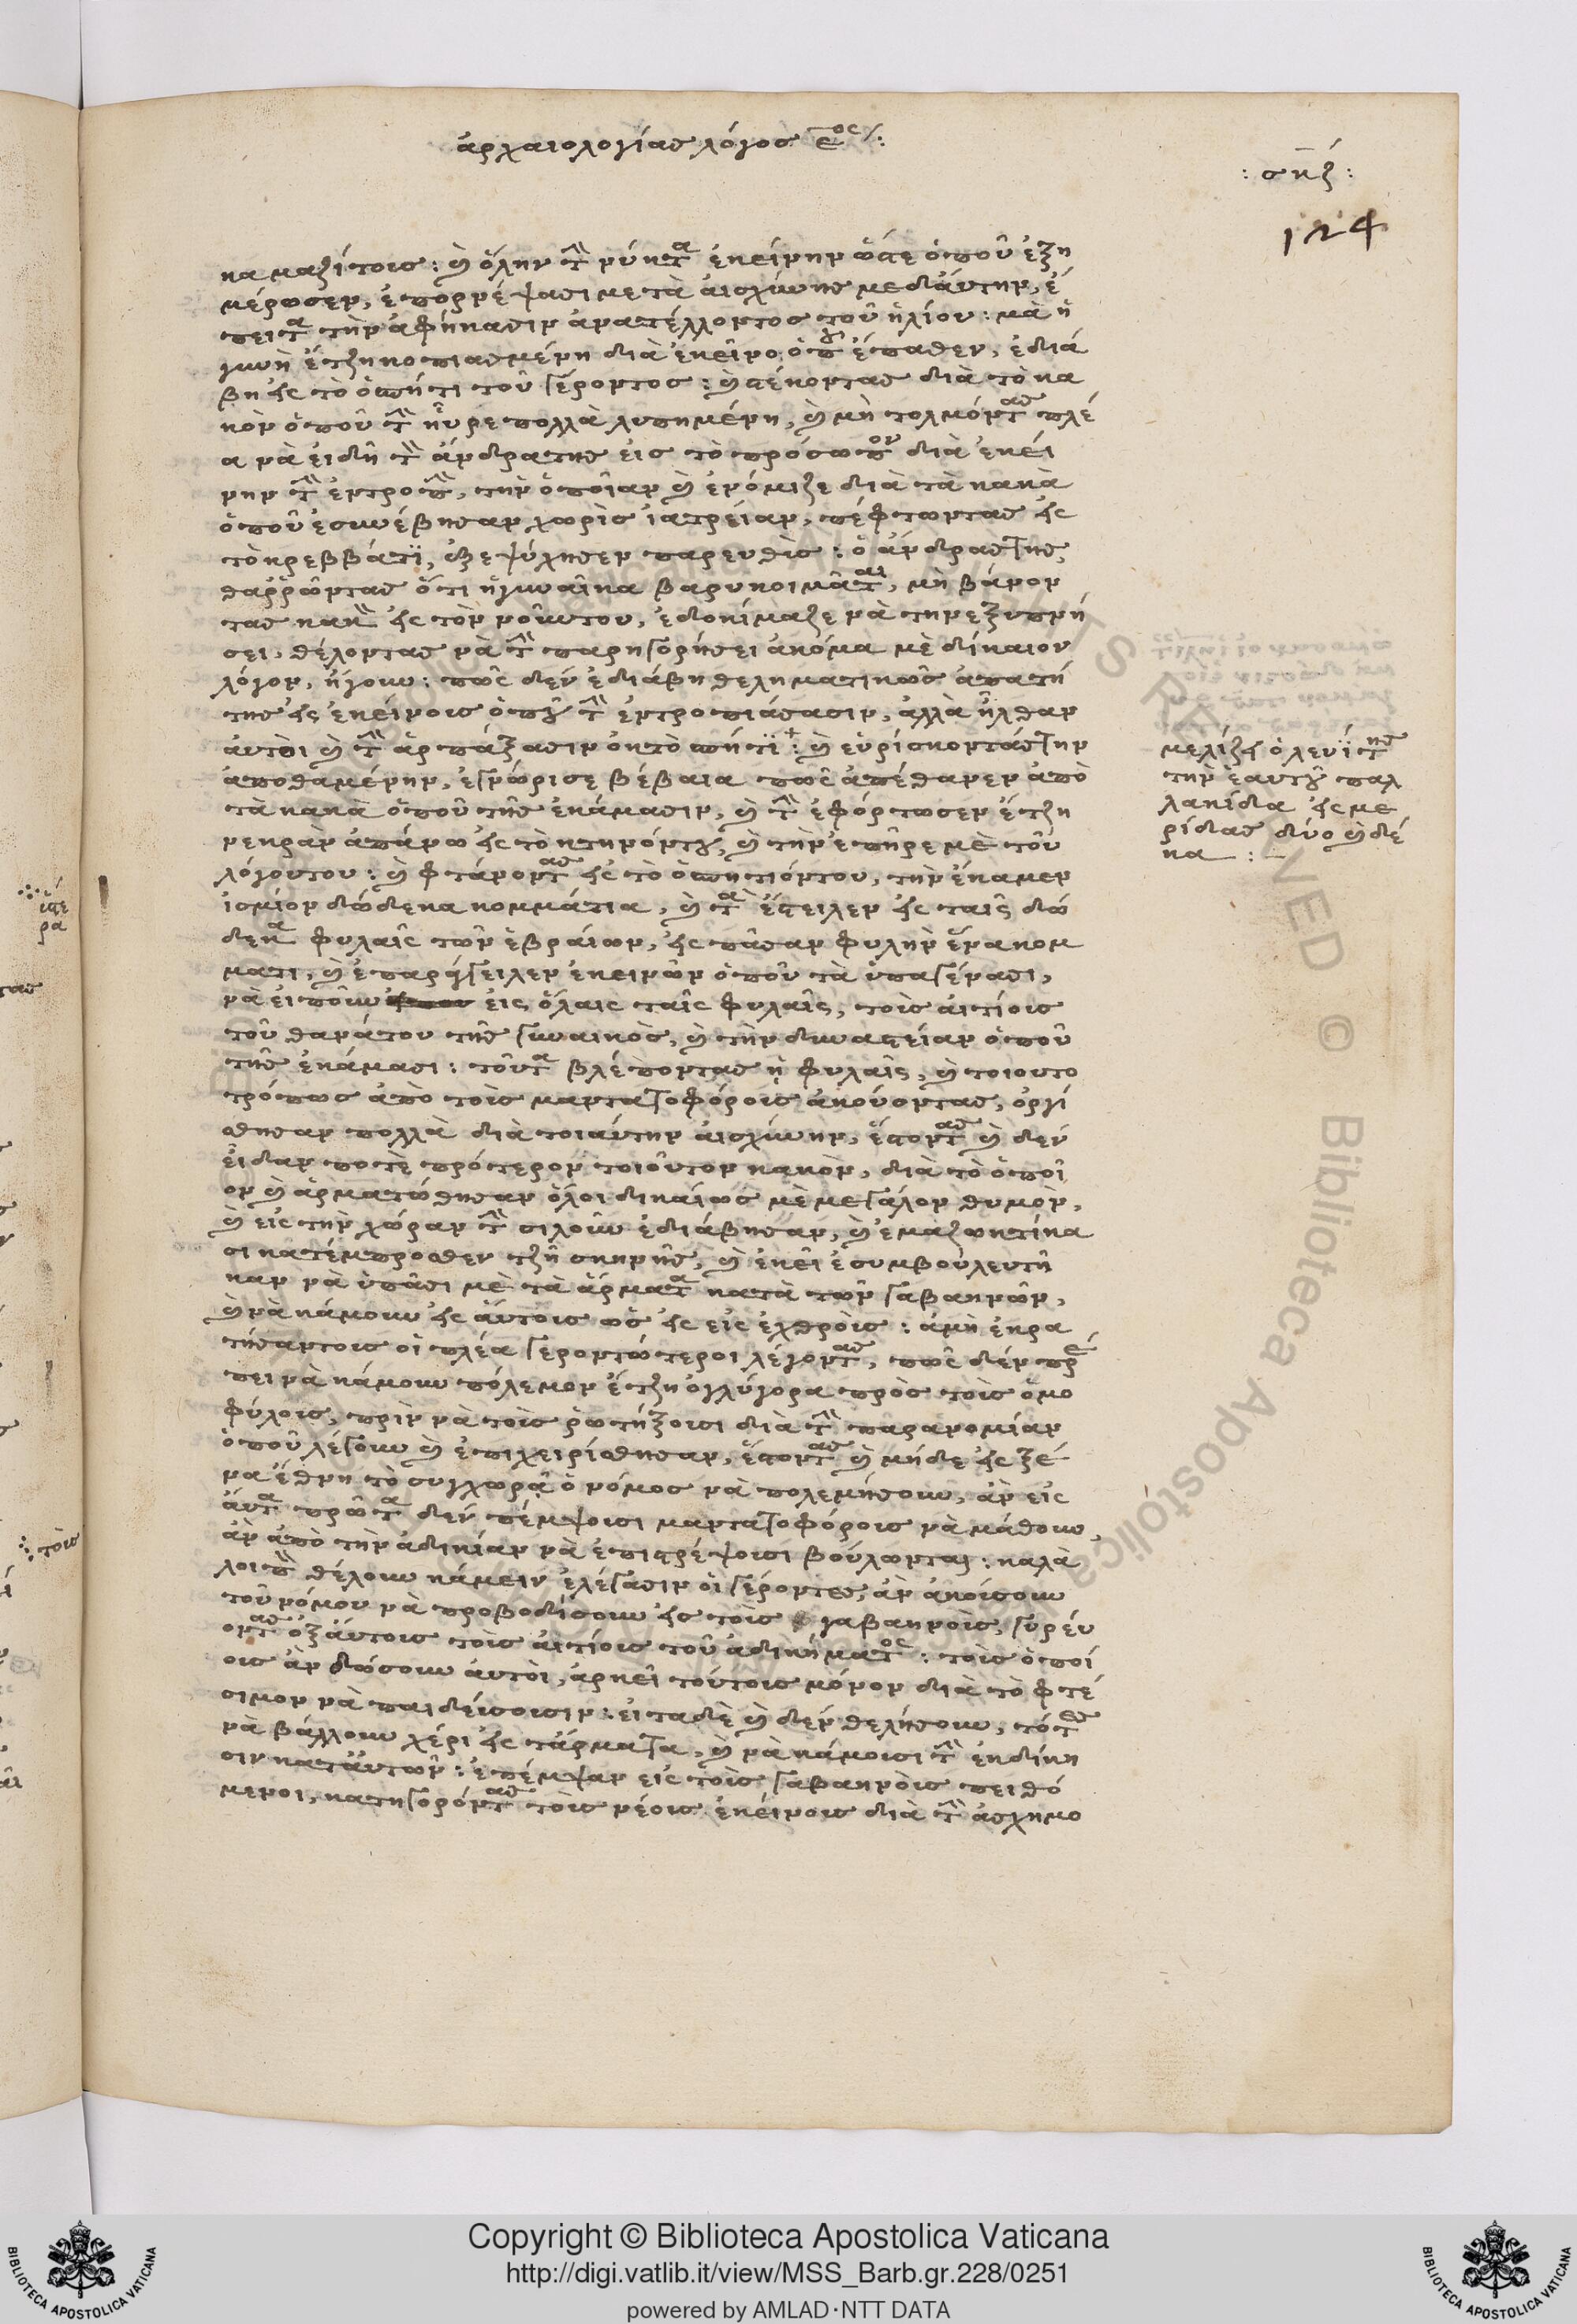 ἀρχαιολογίας λόγος ε̅ος :
: σκζ :
124
κα μαζίτοις : καὶ ὅλην τὴν νύκτα ἐκείνην ὥστε ὁποῦ ἐξη
μέρωσεν, ἐπορνέψασι μετὰ αἰσχύνης μεδάυτην, ἔ
πειτα τὴν ἀφήκασιν ἀνατέλλοντος τοῦ ἡλίου : μὰ ἡ
γυνὴ ἔτζη κοπιασμένη διὰ ἐκεῖνο ὁποῦ ἔπαθεν, ἐδιά
βη εἰς τὸ ὁπήτι τοῦ γέροντος : καὶ στέκοντας διὰ τὸ κα
κὸν ὁποῦ τὴν ηὗρε πολλὰ λυπημένη, καὶ μὴ τολμόντας πλέ
α νὰ εἰδῆ τὸν ἄνδρατης εἰς τὸ πρόσωπον διὰ ἐκεί
νην τὴν ἐντροπὴν, τὴν ὁποῖαν καὶ ἐνόμιζε διὰ τὰ κακὰ
ὁποῦ ἐσυνέβησαν χωρὶς ἰατρείαν, πέφτωντας εἰς
τὸ κρεββάτϊ, ἐξεψύχησεν παρευθὶς : ὁ ἄνδρας της
θαῤῥῶντας ὅτι ἡ γυναῖκα βαρυκοιμᾶται, μὴ βάνον
τας κακὸν εἰς τὸν νοῦντου, ἐδοκίμαζε νὰ τηνεξυπνή
σει, θέλοντας νὰ τὴν παρηγορήσει ἀκόμα μὲ δίκαιον
λόγον, ἤγουν : πῶς δὲν ἐδιάβη θεληματικῶς ἀπατή
της εἰς ἐκείνοις ὁποῦ τὴν ἐντροπιάσασιν, ἀλλὰ ἦλθαν
ἀυτοὶ καὶ τὴν ἁρπάξασιν ὀκτὸ πήτϊ : καὶ εὑρίσκοντάς την
ἀποθαμένην, ἐγνώρισε βέβαια πῶς ἀπέθανεν ἀπὸ
τὰ κακὰ ὁποῦ τῆς ἐκάμασιν, καὶ τὴν ἐφόρτωσεν ἔτζη
νεκρὰν ἀπάνω εἰς τὸ κτηνόντου, καὶ τὴν ἐπῆρε μὲ τοῦ
λόγουτου : καὶ φτάνοντας εἰς τὸ ὁπητιόντου, τὴν ἔκαμεν
ἰσμίον δώδεκα κομμάτια, καὶ τὰ ἔστειλεν εἰς ταῖς δώ
δεκα φυλαῖς τῶν ἑβραίων, εἰς πᾶσαν φυλὴν ἕνα κομ
μάτι, καὶ ἐπαρήγγειλεν ἐκεινῶν ὁποῦ τὰ ὑπαγένασι,
νὰ εἰποῦν εἰς ὅλαις ταῖς φυλαῖς, τοὶς ἀιτίοις
τοῦ θανάτου τῆς γυναικὸς, καὶ τὴν δυναστείαν ὁποῦ
τῆς ἐκάμασι : τοῦτα βλέποντας ἡ φυλαῖς, καὶ τοιουτο
τρόπως ἀπὸ τοὶς μαντατοφόροις ἀκούοντας, ὀργί
σθησαν πολλὰ διὰ τοιάυτην ἀισχύνην, ἔστοντας καὶ δὲν
εἶδαν ποτὲ πρότερον τοιοῦτον κακὸν, διὰ τὸ ὁποῖ
ον καὶ ἀρματώθησαν ὅλοι δικαίως μὲ μεγάλον θυμὸν,
καὶ εἰς τὴν χώραν τὴν σιλοῦν ἐδιάβησαν, καὶ ἐμαζωκτίκα
σι κατέμπροσθεν τζῆ σκηνῆς, καὶ ἐκεῖ ἐσυμβουλευτῆ
καν νὰ ὑπᾶσι μὲ τὰ ἅρματα κατὰ τῶν γαβακνῶν,
καὶ νὰ κάμουν εἰς ἀυτοὶς ὡς εἰς εἰς ἐχθροὶς : ἀμὴ ἐκρα
τήσαντοις οἱ πλέα γεροντώτεροι λέγοντας, πῶς δὲν πρέ
πει νὰ κάμουν πόλεμον ἔτζη ὀγλύγορα πρὸς τοὶς ὁμο
φύλοις, πρὶν νὰ τοὶς ῥωτήξοισι διὰ τὴν παρανομίαν
ὁποῦ λέγουν καὶ ἐπιχειρίσθησαν, ἔστοντας καὶ μήδε εἰς ξέ
να ἔθνη τὸ συγχωρᾶ ὁ νόμος νὰ πολεμήσουν, ἀν εἰς
ἀυτὰ πρῶτα δὲν πέμψοισι μαντατοφόροις νὰ μάθουν,
ἀν ἀπὸ τὴν ἀδικίαν νὰ ἐπιστρέψοισι βούλωνται : καλὰ
λοιπὸν θέλουν κάμειν ἐλέγασιν οἱ γέροντες, ἀν ἀκούσουν
τοῦ νόμου νὰ προβοδίσουν εἰς τοὶς γαβακνοὶς, γυρέυ
οντας ὀξάυτοις τοὶς ἀιτίοις τοῦ ἀδικήματος : τοὶς ὁποί
οις ἀν δώσουν ἀυτοὶ, ἀρκεῖ τούτοις μόνον διὰ τὸ φτέ
σιμον νὰ παιδείσοισιν : εἰταδὲ καὶ δὲν θελήσουν, τότες
νὰ βάλλουν χέρι εἰς τάρματα, καὶ νὰ κάμοισι τὴν ἐκδίκη
σιν κατάυτῶν : ἐπέμψαν εἰς τοὶς γαβακνοὶς πειθό
μενοι, κατηγορόντας τοὶς νέοις ἐκείνοις διὰ τὴν ἀσχημο
μελίζει ὁ λευΐτης
τὴν ἑαυτοῦ παλ
λακίδα εἰς με
ρίδας δύο καὶ δέ
κα :